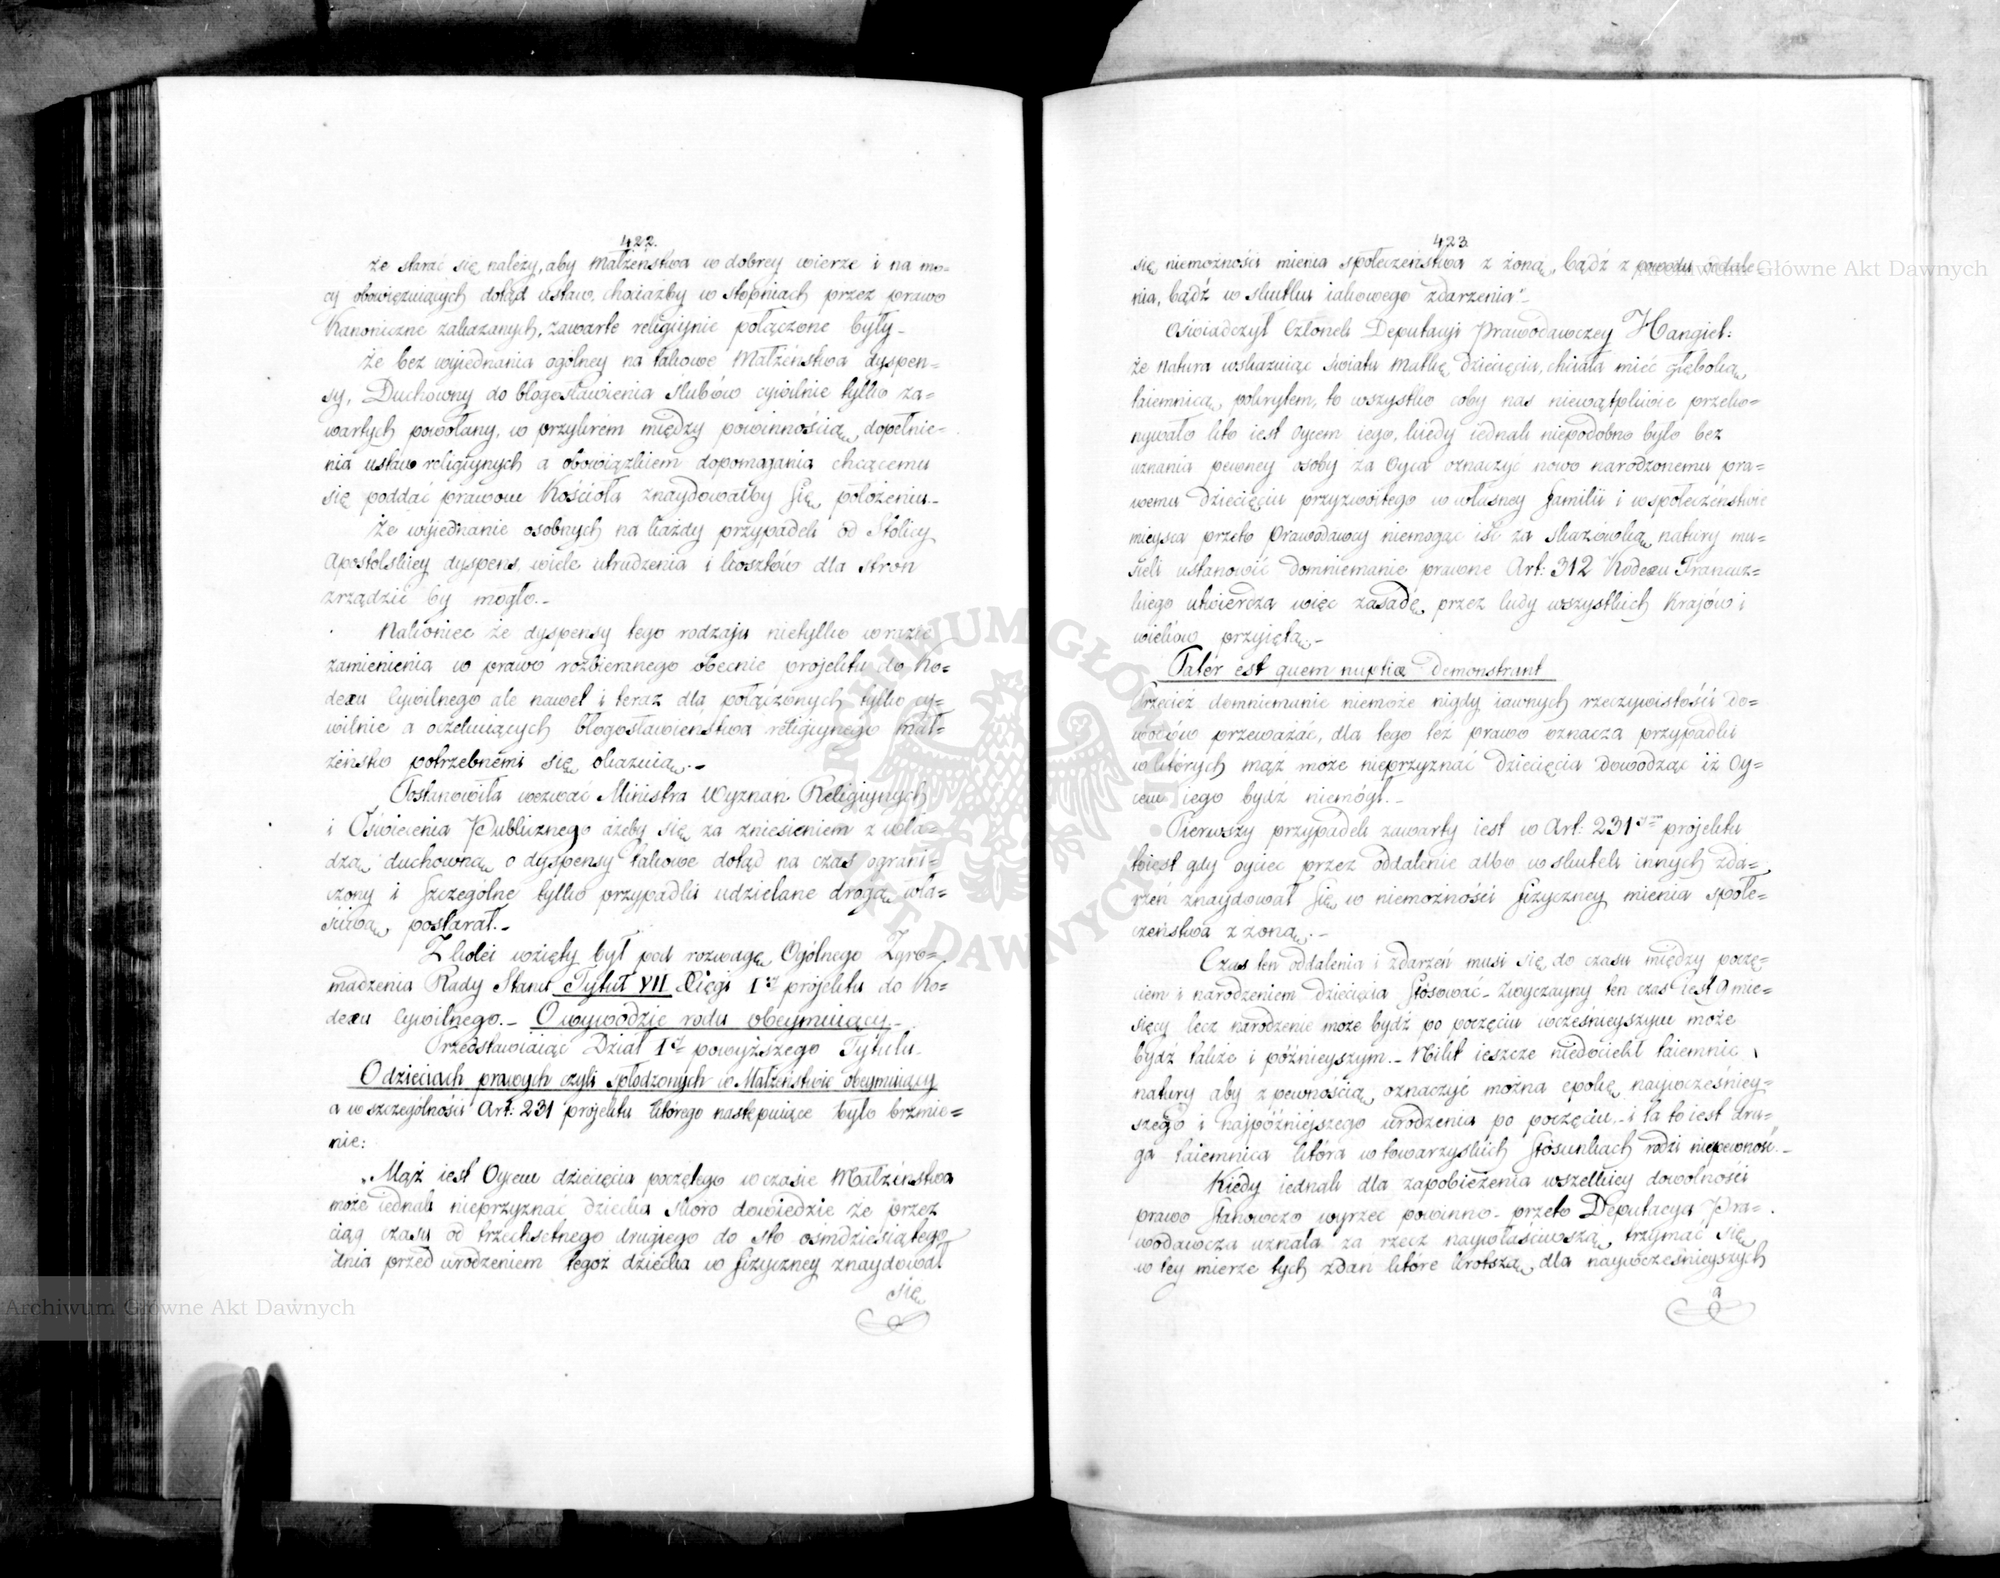 422.
że starać się należy, aby Małżeństwa w dobrey wierze i na mo=
cy obowięzuiących dotąd ustaw, chociażby w stopniach przez prawo
Kanoniczne zakazanych, zawarte religiynie połączone były_
Że bez wyiednania ogólney na takowe Małżeństwa dyspen=
sy, Duchowny do błogosławienia slubów cywilnie tylko za=
wartych powołany, w przykrém między powinnością dopełnie=
nia ustaw religiynych a obowiązkiem dopomagania chcącemu
się poddać prawom Kościoła znaydowałby się położeniu_
Że wyiednanie osobnych na każdy przypadek od Stolicy
Apostolskiey dyspens, wiele utrudzenia i kosztów dla stron
zrządzić by mogło._
Nakoniec że dyspensy tego rodzaju nietylko w razie
zamienienia w prawo rozbieranego obecnie projektu do Ko=
dexu Cywilnego ale nawet i teraz dla połączonych tylko cy=
wilnie a oczekuiących błogosławieństwa religiynego mał=
żeństw potrzebnemi się okazuią._
Postanowiła wezwać Ministra Wyznań Religiynych
i Oświecenia Publicznego ażeby się za zniesieniem z wła=
dzą duchowną o dyspensy takowe dotąd na czas ograni=
czony i szczególne tylko przypadki udzielane drogą wła=
ściwą postarał._
Z kolei wzięty był pod rozwagę Ogólnego Zgro=
madzenia Rady Stanu Tytuł VII Xięgi I projektu do Ko=
dexu Cywilnego._ O wywodzie rodu obeymuiący_
Przedstawiaiąc Dział I powyższego Tytułu
O dzieciach prawych czyli spłodzonych w Małżeństwie obeymuiący
a w szczególności Art: 231 projektu którego następuiące było brzmie=
nie:
„Mąż iest Oycem dziecięcia poczętego w czasie Małżeństwa
może iednak nieprzyznać dziecka skoro dowiedzie że przez
ciąg czasu od trzechsetnego drugiego do sto ośmdziesiątego
dnia przed urodzeniem tegoż dziecka w fizyczney znaydował
się
423.
się niemożności mienia społeczeństwa z żoną, bądź z powodu oddale=
nia, bądź w skutku iakowego zdarzenia"_
Oświadczył Członek Deputacyi Prawodawczey Hangiel:
że Natura wskazuiąc światu Matkę dziecięcia, chciała mieć głęboką
taiemnicą pokrytem, to wszystko coby nas niewątpliwie przeko=
nywało kto iest oycem iego, kiedy iednak niepodobno było bez
uznania pewney osoby za Oyca oznaczyć nowo narodzonemu pra=
wemu dziecięciu przyzwoitego w własney familii i w społeczeństwie
mieysca przeto Prawodawcy niemogąc iść za skazówką natury mu=
sieli ustanowić domniemanie prawne Art: 312 Kodexu Francuz=
kiego utwierdza więc zasadę przez ludy wszystkich Krajów i
wieków przyiętą._
Pater est quem nuptiæ demonstrant
Przecież domniemanie niemoże nigdy iawnych rzeczywistości do=
wodów przeważać, dla tego też prawo oznacza przypadki
w których mąż może nieprzyznać dziecięcia dowodząc iż Oy=
cem iego bydź niemógł._
Pierwszy przypadek zawarty iest w Art: 231 projektu
toiest gdy oyciec przez oddalenie albo w skutek innych zda=
rzeń znaydował się w niemożności fizyczney mienia społe=
czeństwa z żoną._
Czas ten oddalenia i zdarzeń musi się do czasu między poczę=
ciem i narodzeniem dziecięcia stosować_ zwyczayny ten czas iest 9 mie=
sięcy lecz narodzenie może bydź po poczęciu wcześnieyszym może
bydź także i późnieyszym._ Nikt ieszcze niedociekł taiemnic
natury aby z pewnością oznaczyć można epokę naywcześniey=
szego i naypóźniejszego urodzenia po poczęciu_ i ta to iest dru=
ga taiemnica która w towarzyskich stosunkach rodzi niepewność._
Kiedy iednak dla zapobieżenia wszelkiey dowolności
prawo stanowczo wyrzec powinno_ przeto Deputacya Pra=
wodawcza uznała za rzecz naywłaściwszą trzymać się
w tey mierze tych zdań które krótszą dla naywcześnieyszych
a
ARCHIWUM GŁÓWNE AKT DAWNYCH
Archiwum Główne Akt Dawnych
Archiwum Główne Akt Dawnych